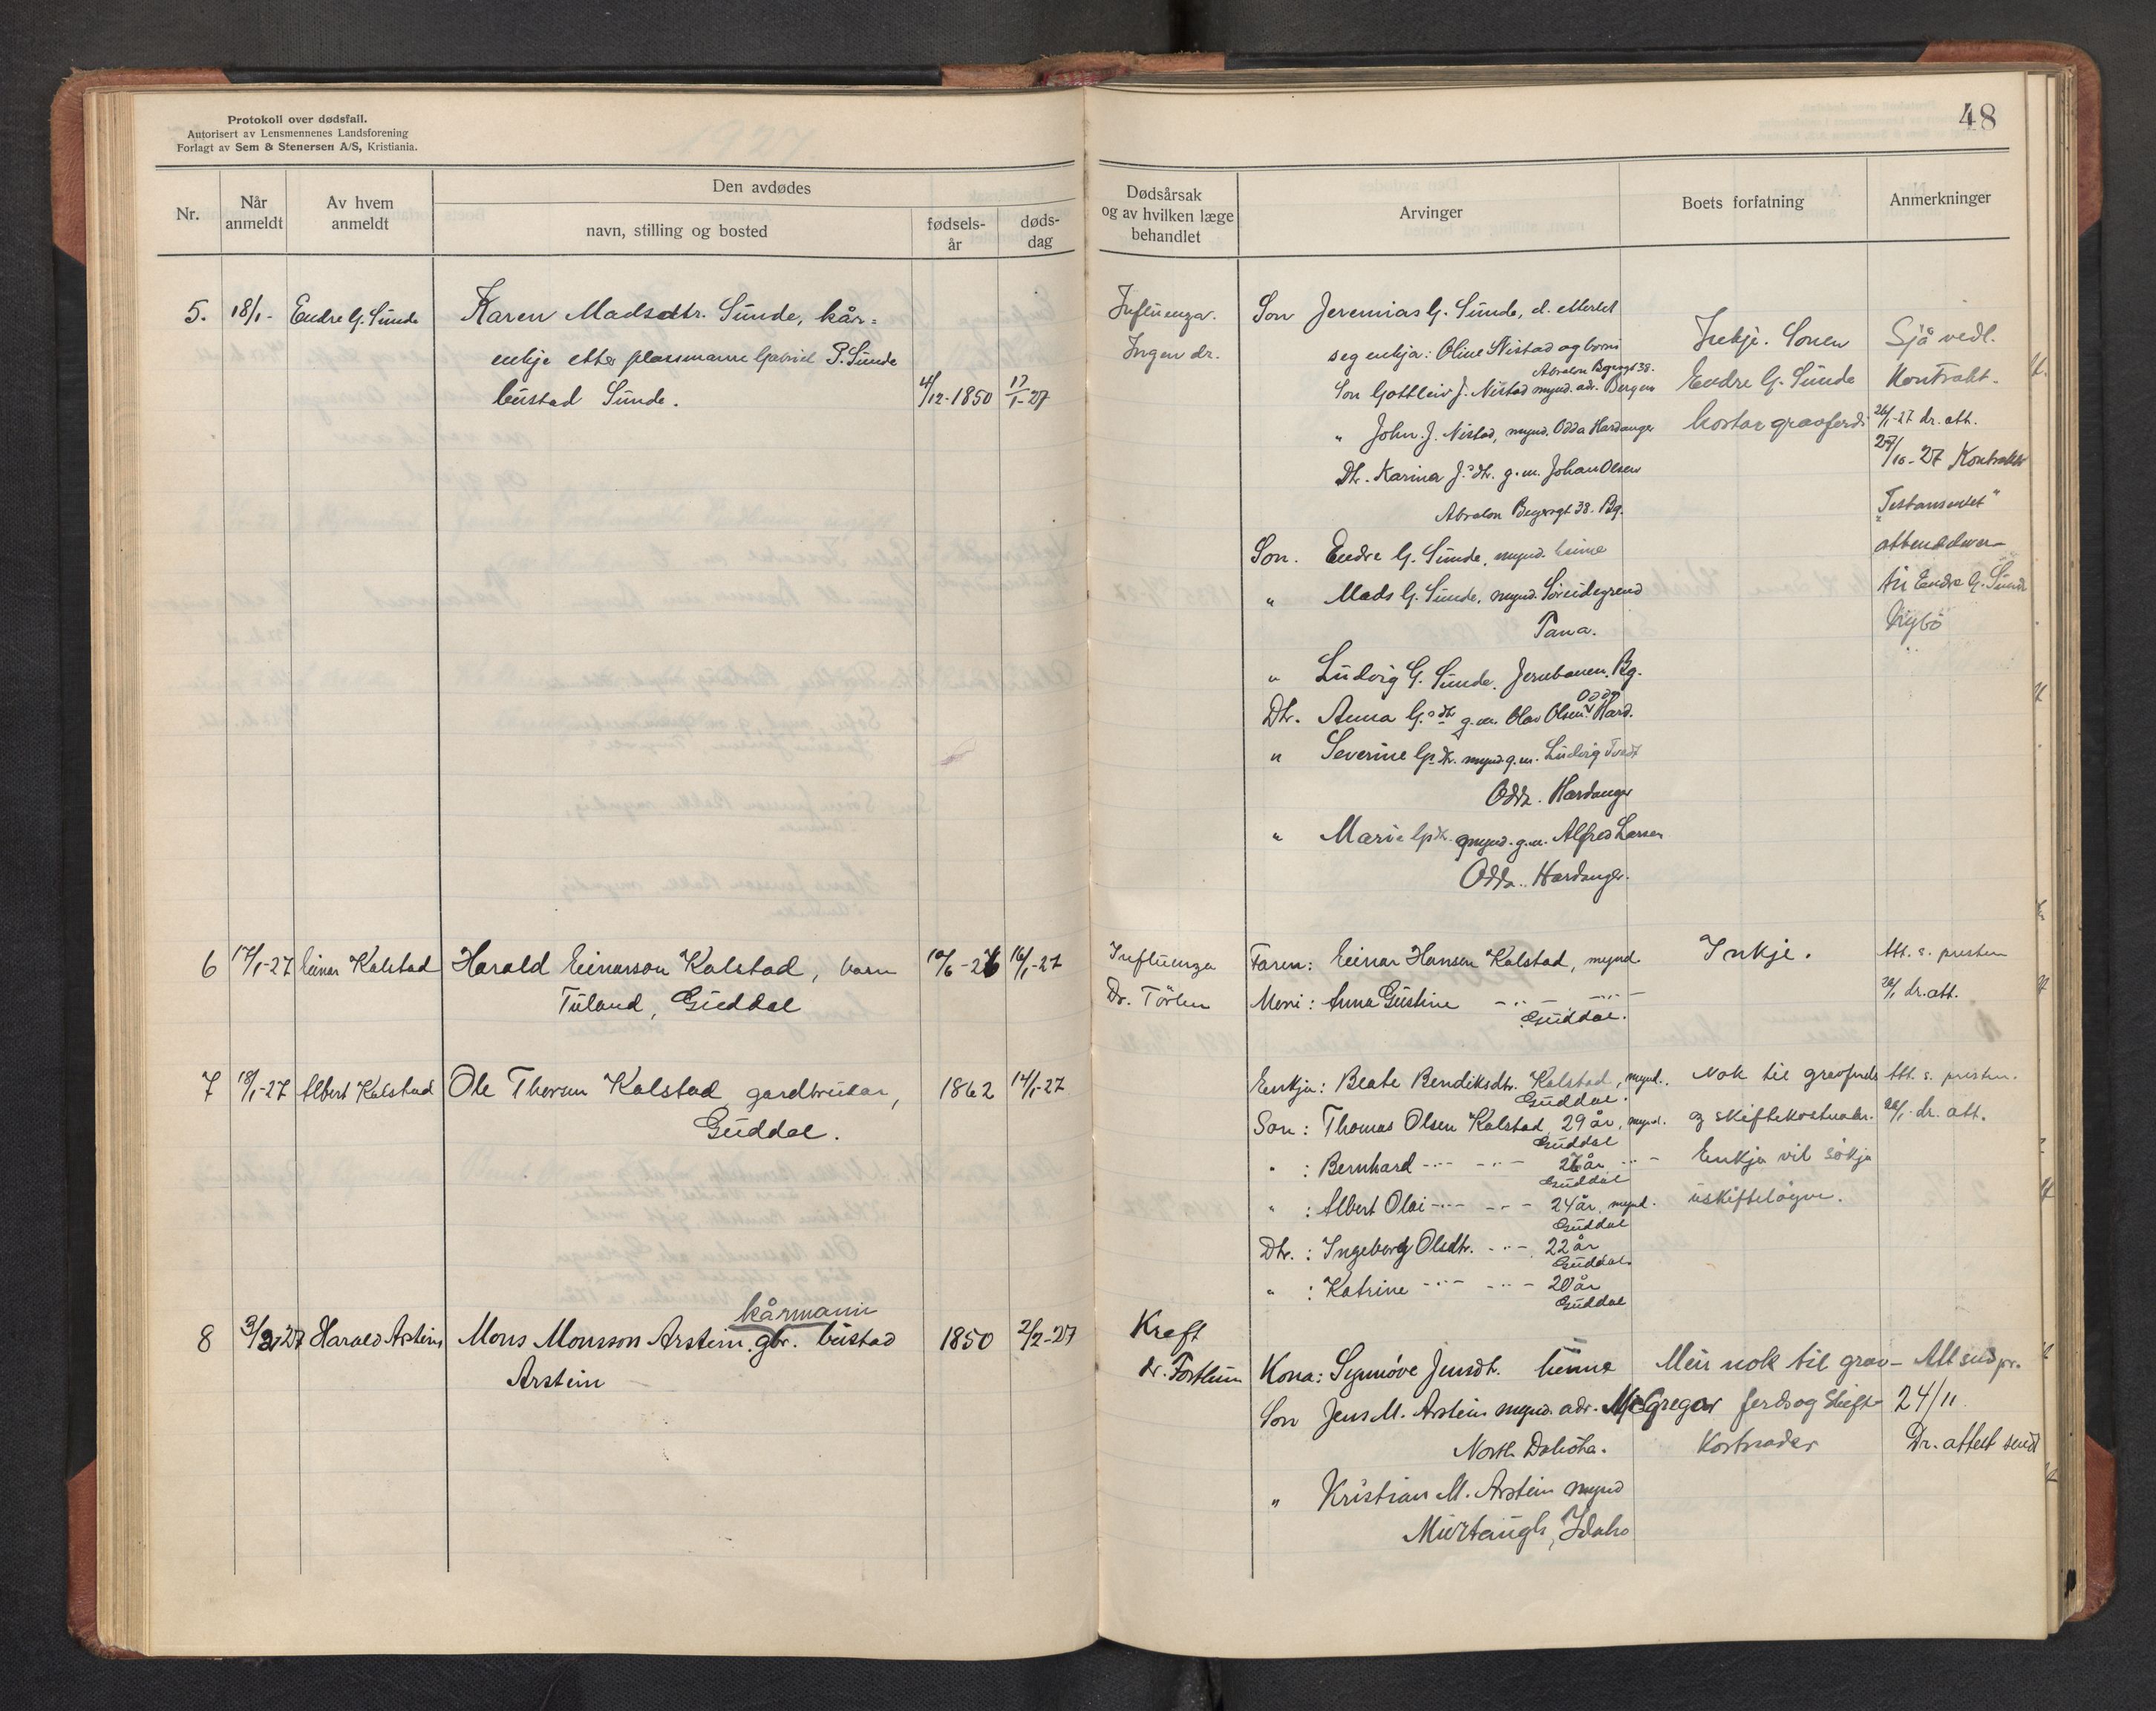 Protokoll over dødsfall.
Autorisert av Lensmennenes Landsforening
Forlagt av Sem & Stenersen A/S, Kristiania.
48
Nr.
Når anmeldt
Av hvem anmeldt
Den avdødes
navn, stilling og bosted
fødsels-år
døds-dag
Dødsårsak og av hvilken læge behandlet
Arvinger
Boets forfatning
Anmerkninger
5. 18/1- Endre G. Sunde Karen Madsdtr. Sunde, kår-
enkje etter plassmann Gabriel P. Sunde
bustad Sunde. 4/12-1850 17/1-27
Influenza.
Ingen dr.
Son Jeremias G. Sunde, d. etterlet
seg enkja: Oline Nistad og born:
Absalon Beyersgt 38.
Son Gottleiv J. Nistad mynd. adr. Bergen
" John. J. Nistad, mynd. Odda Hardanger
Dtr. Karina J.dtr. g.m. Johan Olsen
Absalon Beyersgt. 38. Bg.
Son. Endre G. Sunde, mynd. heime
" Mads G. Sunde, mynd. Søreidegrend
Fana.
" Ludvig G. Sunde. Jernbanen. Bg.
Dtr. Anna G.dtr g.m. Olav Olsen Odda Hard.
" Severine G.dtr. mynd g.m. Ludvig Tvedt
Odda. Hardanger
" Marie G.dtr. mynd. g.m. Alfred Larsen
Odda. Hardanger.
Inkje. Sonen
Endre G. Sunde
kostar gravferdi
Sjå vedl.
Kontrakt.
26/1-27 dr. att.
27/10-27 Kontrakt
"Testamentet"
til Endre G. Sunde
6 17/1-27 Einar Kalstad Harald Einarson Kalstad, barn
Tuland, Guddal
10/6-26 16/1-27
Influenza
Dr.
Faren: Einar Hansen Kalstad, mynd.
Mori: Anna Gustine -"- -"-
Guddal.
Inkje.
Att. s. presten
26/1 dr. att.
7 18/1-27 Albert Kalstad Ole Thorsen Kalstad gardbrukar,
Guddal.
1862 14/1-27
Enkja: Beate Bendiksdtr. Kalstad, mynd.
Guddal.
Son: Thomas Olsen Kalstad, 29 år, mynd.
Guddal
" : Bernhard -"- -"- 26 år -"-
Guddal
" : Albert Olai -"- -"- 24 år, mynd.
Guddal
Dtr. : Ingeborg Olsdtr. -"- 22 år
Guddal.
" : Katrine -"- -"- 20 år
Guddal
Nok til gravferds
og skiftekostnader.
Enkja vil søkja
uskifteløyve.
Att. s. presten.
26/1- dr. att.
8 3/2-27 Harald Arstein Mons Monsson Arstein. gbr. bustad
kårmann
Arstein
1850 2/2-27
Kreft
dr. Forthun
Kona: Synnøve Jensdtr. heime
Son Jens M. Arstein mynd. adr. McGregor
North Dakota.
" Kristian M. Arstein mynd
Murtaugh, Idaho
Meir nok til grav-
ferds og skifte
kostnader
Att send pr.
24/11
Dr. attest sendt